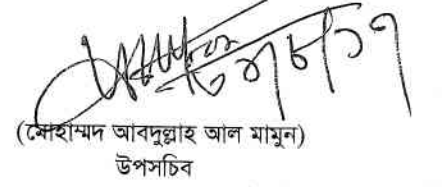 (মোহাম্মদ আবদুল্লাহ আল মামুন)
উপসচিব